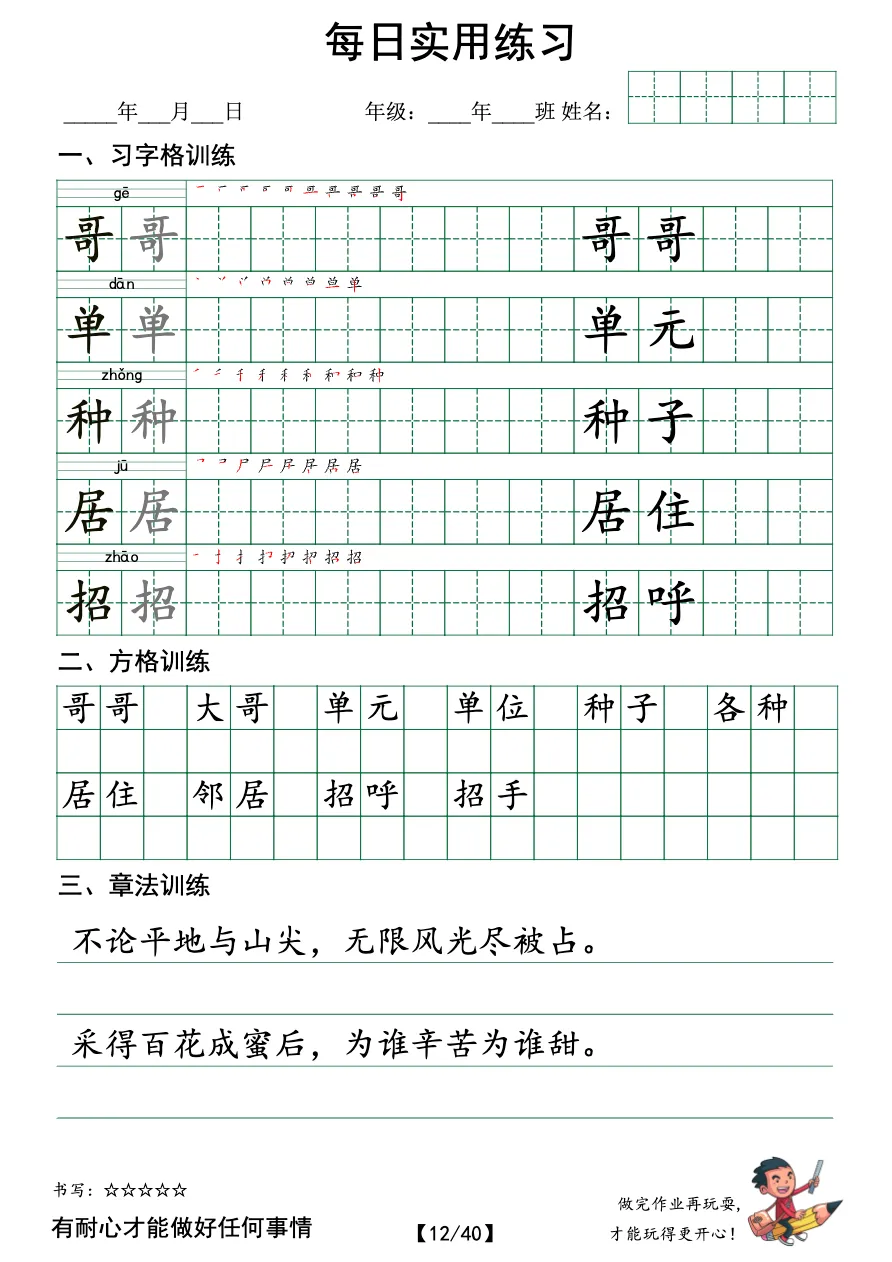 每日实用练习
_____年___月___日 年级：____年____班 姓名：
一、习字格训练
gē
哥 哥 哥 哥
dān
单 单 单 元
zhǒng
种 种 种 子
jū
居 居 居 住
zhāo
招 招 招 呼
二、方格训练
哥哥 大哥 单元 单位 种子 各种
居住 邻居 招呼 招手
三、章法训练
不论平地与山尖，无限风光尽被占。
采得百花成蜜后，为谁辛苦为谁甜。
书写：☆☆☆☆☆
有耐心才能做好任何事情
【12/40】
做完作业再玩耍，
才能玩得更开心！